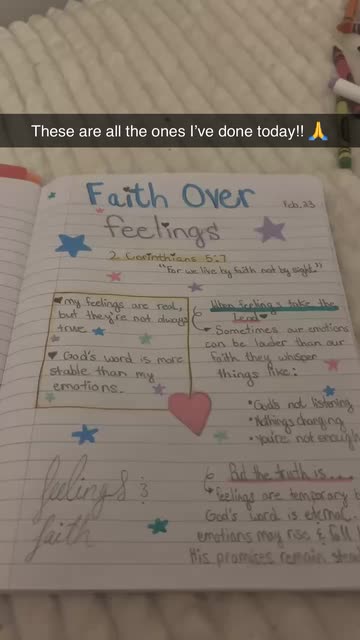 These are all the ones I've done today!! 🙏
Faith Over
Feb. 23
feelings
2 Corinthians 5:7
"For we live by faith not by sight."
my feelings are real,
but they're not always
true
God's word is more
stable than my
emotions.
When feelings take the
lead
Sometimes our emotions
can be louder than our
faith they whisper
things like:
God's not listening
Nothings changing
You're not enough
feelings &
faith
But the truth is...
feelings are temporary
God's word is eternal.
emotions may rise & fall
His promises remain